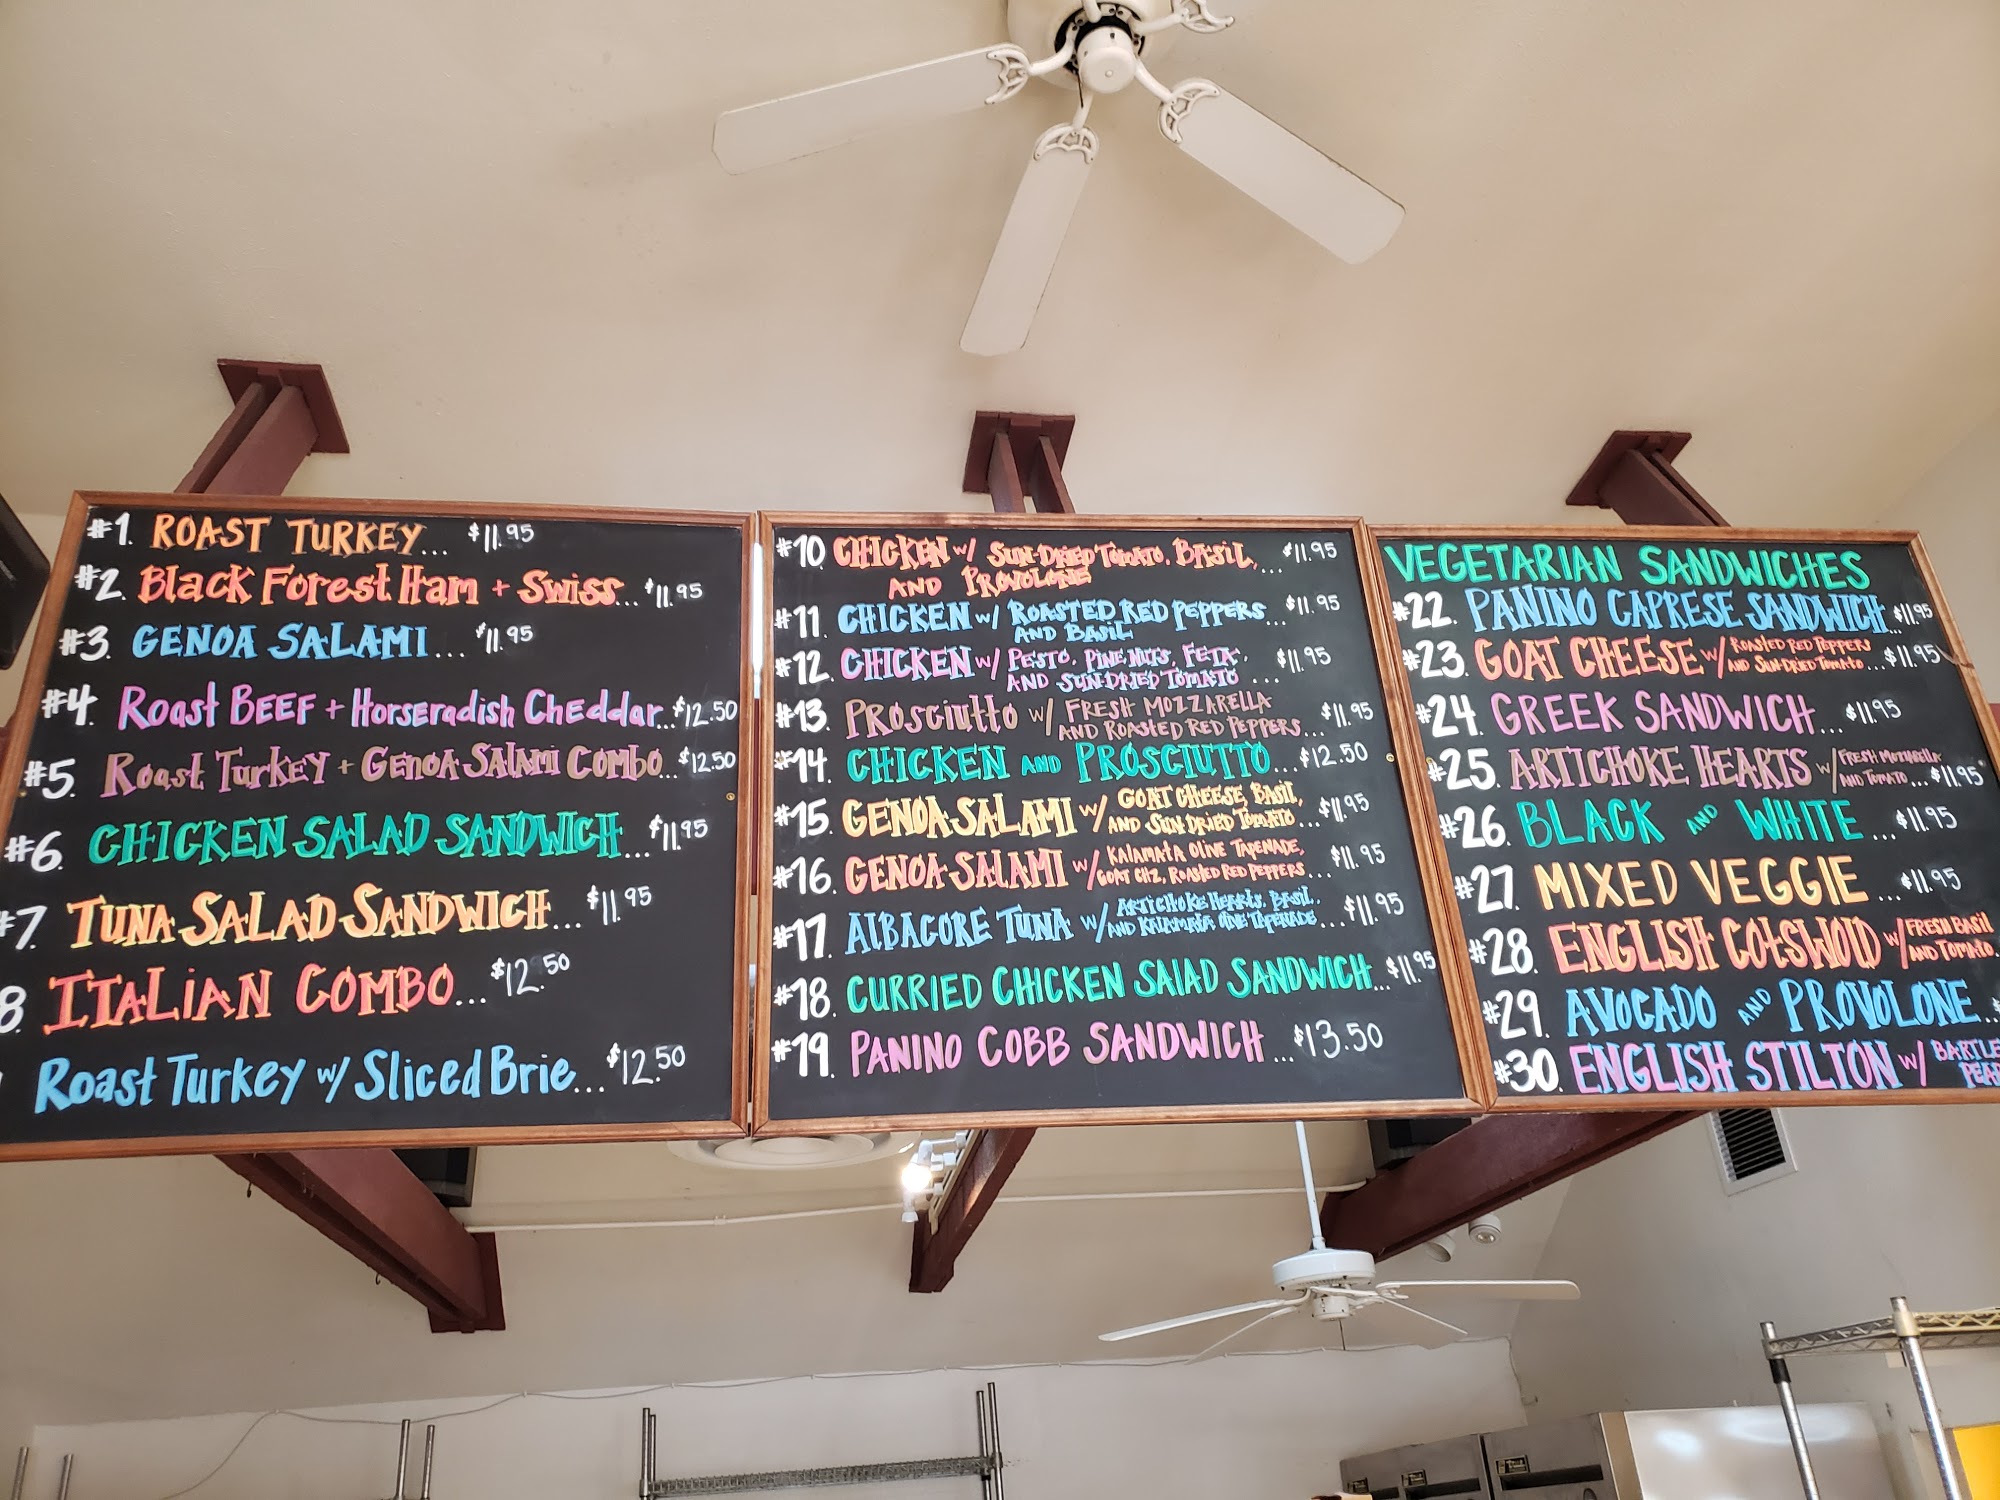 #1. ROAST TURKEY... $11.95
#2. Black Forest Ham + Swiss... $11.95
#3. GENOA SALAMI... $11.95
#4. Roast BEEF + Horseradish Cheddar... $12.50
#5. Roast Turkey + Genoa Salami Combo... $12.50
#6. CHICKEN SALAD SANDWICH... $11.95
#7. TUNA SALAD SANDWICH... $11.95
8. ITALIAN COMBO... $12.50
Roast Turkey w/ Sliced Brie... $12.50
#10 CHICKEN w/ SUN-DRIED TOMATO, BASIL, ... $11.95
AND PROVOLONE
#11. CHICKEN w/ ROASTED RED PEPPERS... $11.95
AND BASIL
#12. CHICKEN w/ PESTO, PINE NUTS, FETA, $11.95
AND SUN-DRIED TOMATO ...
#13. PROSCIUTTO w/ FRESH MOZZARELLA $11.95
AND ROASTED RED PEPPERS...
#14. CHICKEN AND PROSCIUTTO... $12.50
#15. GENOA SALAMI w/ GOAT CHEESE, BASIL, $11.95
AND SUN DRIED TOMATO...
#16. GENOA SALAMI w/ KALAMATA OLIVE TAPENADE, $11.95
GOAT CHZ, ROASTED RED PEPPERS...
#17. ALBACORE TUNA w/ ARTICHOKE HEARTS, BASIL, $11.95
AND KALAMATA OLIVE TAPENADE...
#18. CURRIED CHICKEN SALAD SANDWICH... $11.95
#19. PANINO COBB SANDWICH... $13.50
VEGETARIAN SANDWICHES
#22. PANINO CAPRESE SANDWICH... $11.95
#23. GOAT CHEESE w/ ROASTED RED PEPPERS $11.95
AND SUN-DRIED TOMATO...
#24. GREEK SANDWICH... $11.95
#25. ARTICHOKE HEARTS w/ FRESH MOZZARELLA
AND TOMATO... $11.95
#26. BLACK AND WHITE... $11.95
#27. MIXED VEGGIE... $11.95
#28. ENGLISH COTSWOLD w/ FRESH BASIL
AND TOMATO.
#29. AVOCADO AND PROVOLONE...
#30. ENGLISH STILTON w/